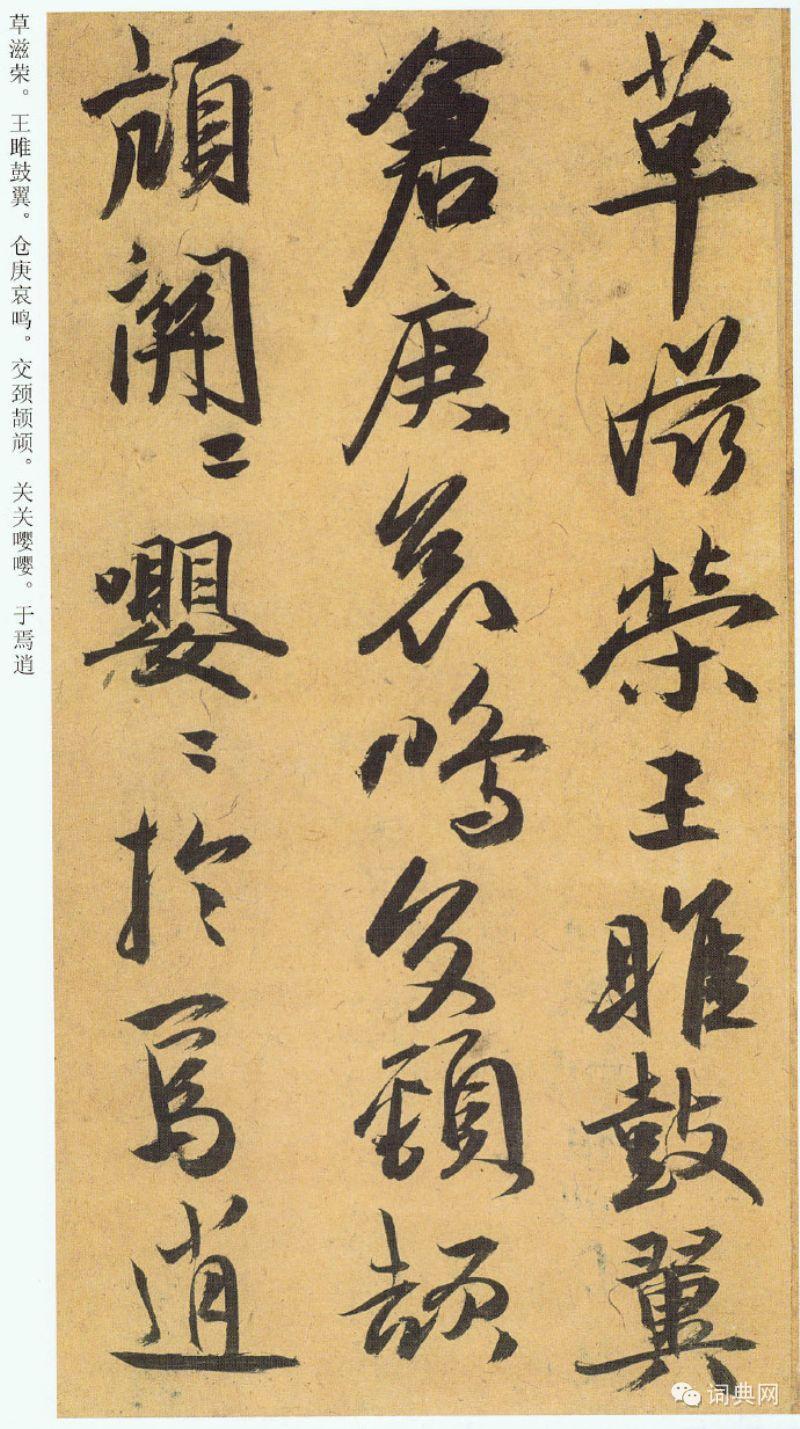 草滋榮王雎鼓翼
倉庚哀鳴交頸頡
頏關〻嚶〻於焉逍
草滋荣。王雎鼓翼。仓庚哀鸣。交颈颉颃。关关嘤嘤。于焉逍
词典网